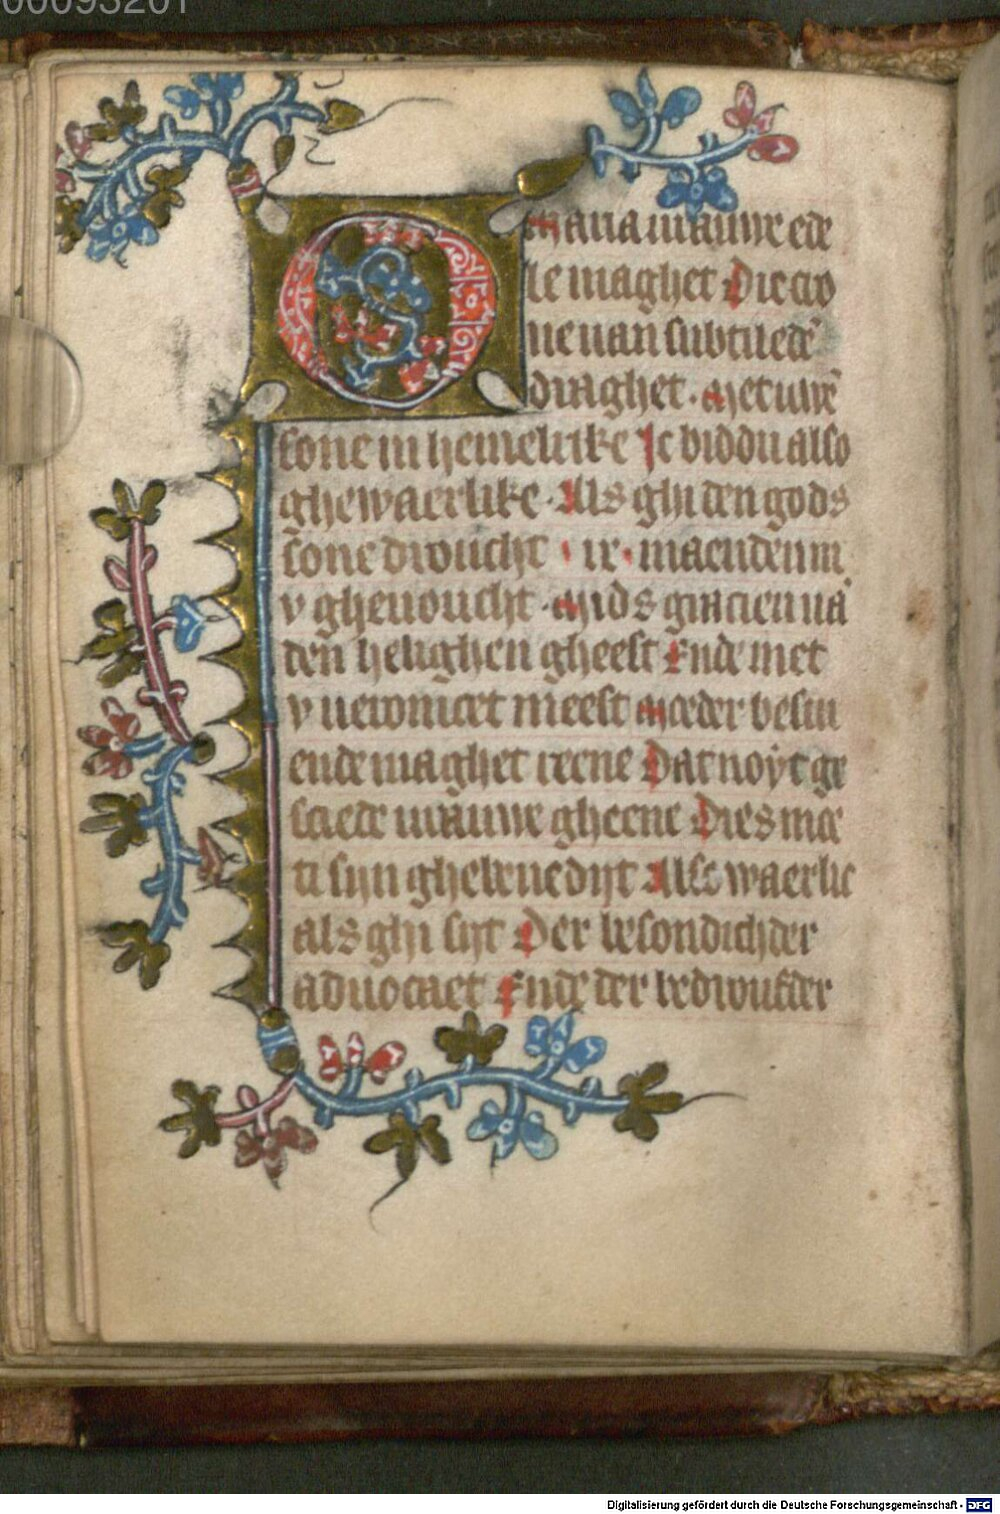 00093201
O maria vrauwe ede
le maghet Die cro
ne van subtiledē
draghet. Met uwē
sone in hemelrike Ic biddu also
ghewaerlike. Als ghi den gods
sone droucht ix. maenden in
v ghenoucht. Mids gracien vā
den helighen gheest Ende met
v neronicet meest Moeder besiu
ende maghet reene Dat noyt ge
sciede vrauwe gheene Dies moe
ti sijn ghebenedijt Also waerlic
als ghi sijt Der besondichder
aduocaet Ende der bedroufder
Digitalisierung gefördert durch die Deutsche Forschungsgemeinschaft - DFG